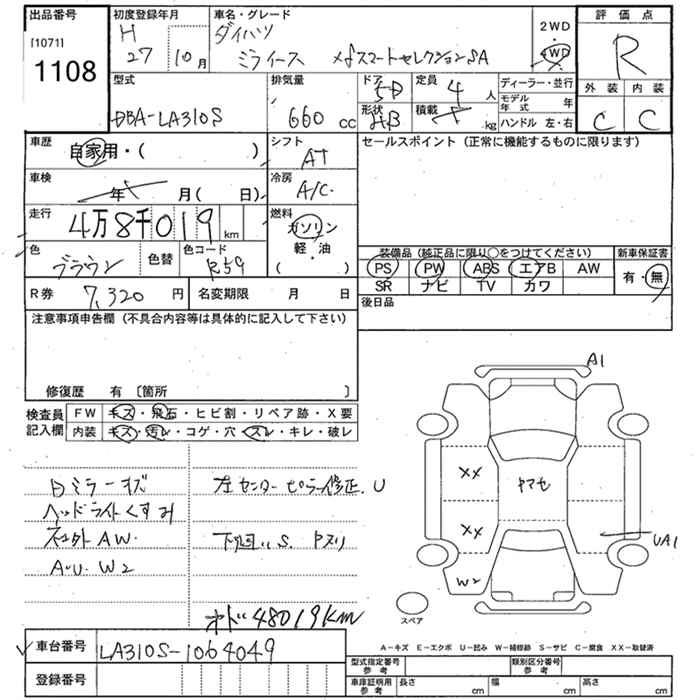 出品番号 初度登録年月 車名・グレード 評価点
[1071] H ダイハツ 2WD
1108 27 10月 ミライース メモリアル スマートセレクションSA 4WD R
型式 排気量 ドア 5D 定員 4人 ディーラー・並行 外装 内装
DBA-LA310S 660 cc 形状 HB 積載 kg モデル年式 年 C C
ハンドル 左・右
車歴 自家用・( ) シフト AT セールスポイント(正常に機能するものに限ります)
車検 年 月( 日) 冷房 A/C
走行 4万8千019km 燃料 ガソリン
色 ブラウン 色替 色コード R59 軽・油 ( )
装備品(純正品に限り○をつけてください) 新車保証書
PS PW ABS エアB AW 有・無
SR ナビ TV カワ
R券 7,320円 名変期限 月 日 後日品
注意事項申告欄(不具合内容等は具体的に記入して下さい)
修復歴 有 〔箇所 〕
検査員記入欄 FW キズ・飛石・ヒビ割・リペア跡・X要
内装 キズ・汚レ・コゲ・穴・スレ・キレ・破レ
A1
Dミラーキズ 左センターピラー修正.U
ヘッドライトくすみ XX ヤマセ
社外AW 下廻り S. Pヌリ XX UA1
A・U W2 W2
オド48019KM スペア
車台番号 LA310S-1064049 A-キズ E-エクボ U-凹み W-補修跡 S-サビ C-腐食 XX-取替済
登録番号 型式指定番号 参考 類別区分番号 参考
車庫証明用 参考 長さ cm 幅 cm 高さ cm